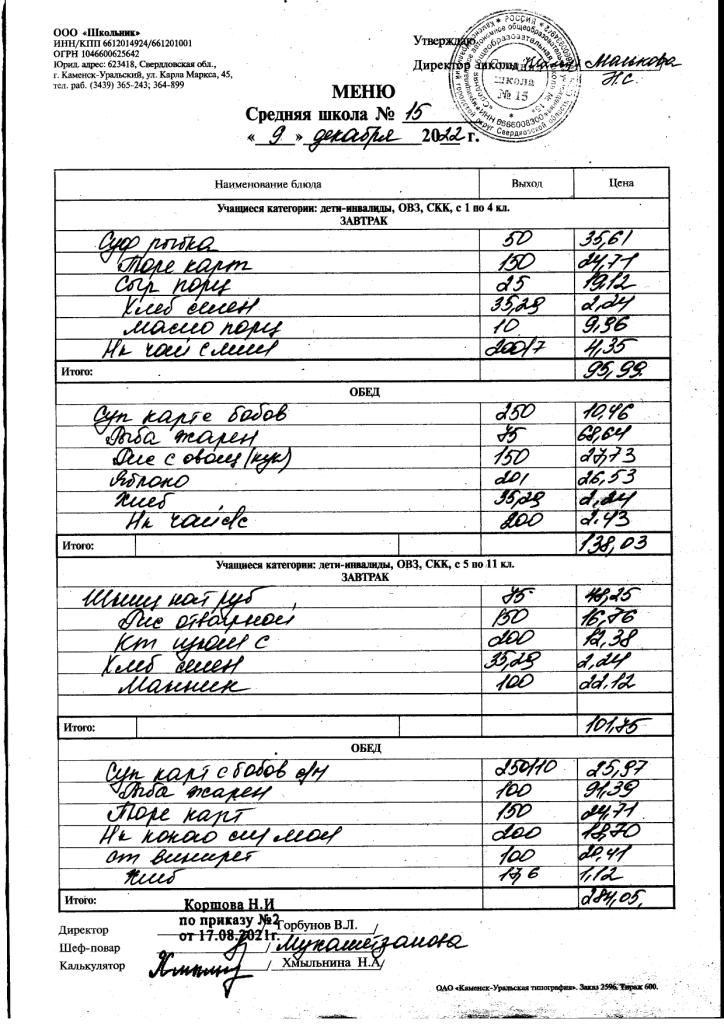 ООО «Школьник»
ИНН/КПП 6612014924/661201001
ОГРН 1046600625642
Юрид. адрес: 623418, Свердловская обл.,
г. Каменск-Уральский, ул. Карла Маркса, 45,
тел. раб. (3439) 365-243; 364-899
Утверждаю
Директор школы
школа
№ 15
МЕНЮ
Средняя школа № 15
« 9 » декабря 2022 г.
Наименование блюда Выход Цена
Учащиеся категории: дети-инвалиды, ОВЗ, СКК, с 1 по 4 кл.
ЗАВТРАК
Суф рыбка 50 35,61
Пюре карт 150 24,71
Сыр порц 25 19,12
Хлеб 35,29 2,24
Масло порц 10 9,96
Нк чай с лим 200/7 4,35
Итого: 95,99
ОБЕД
Суп карт с бобов 250 10,46
Рыба жарен 75 68,64
Рис с овощ (кук) 150 27,73
Яблоко 201 26,53
Хлеб 35,29 2,24
Нк чай 200 2.43
Итого: 138,03
Учащиеся категории: дети-инвалиды, ОВЗ, СКК, с 5 по 11 кл.
ЗАВТРАК
75 48,25
Рис отварной 150 16,76
200 12,38
Хлеб 35,29 2,24
Манник 100 22.12
Итого: 101,75
ОБЕД
Суп карт с бобов 250/10 25,97
Рыба жарен 100 91,39
Пюре карт 150 24,71
Нк какао 200 18,70
от винегрет 100
Хлеб 1,12
Итого:
Коршова Н.И
по приказу №2
от 17.08.2021г.
Директор / Горбунов В.Л. /
Шеф-повар
Калькулятор / Хмыльнина Н.А/
ОАО «Каменск-Уральская типография». Заказ 2596. Тираж 600.